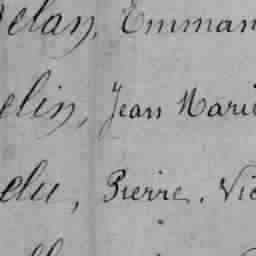 elan, Emman
elin, Jean Mari
du, Pierre, Vic